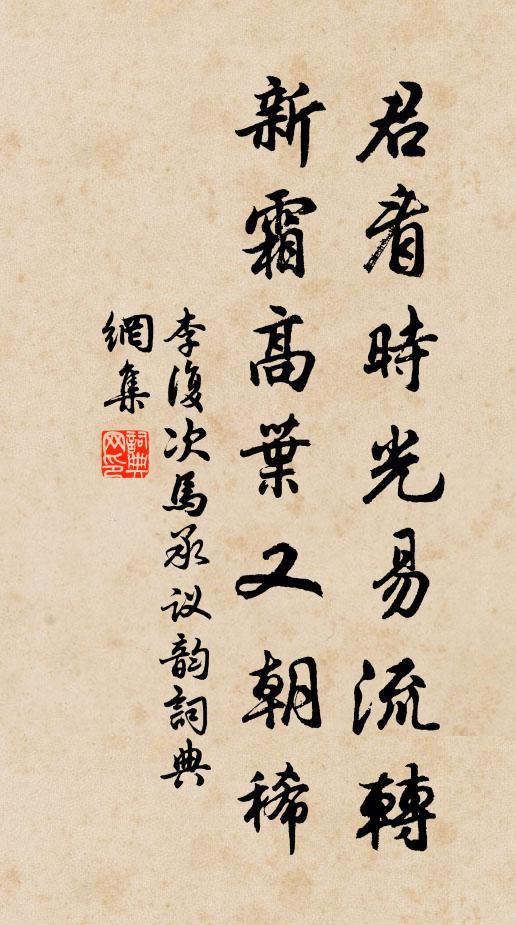 君看時光易流轉
新霜高葉又朝稀
李復次馬承议韵詞典
網集
詞典网印